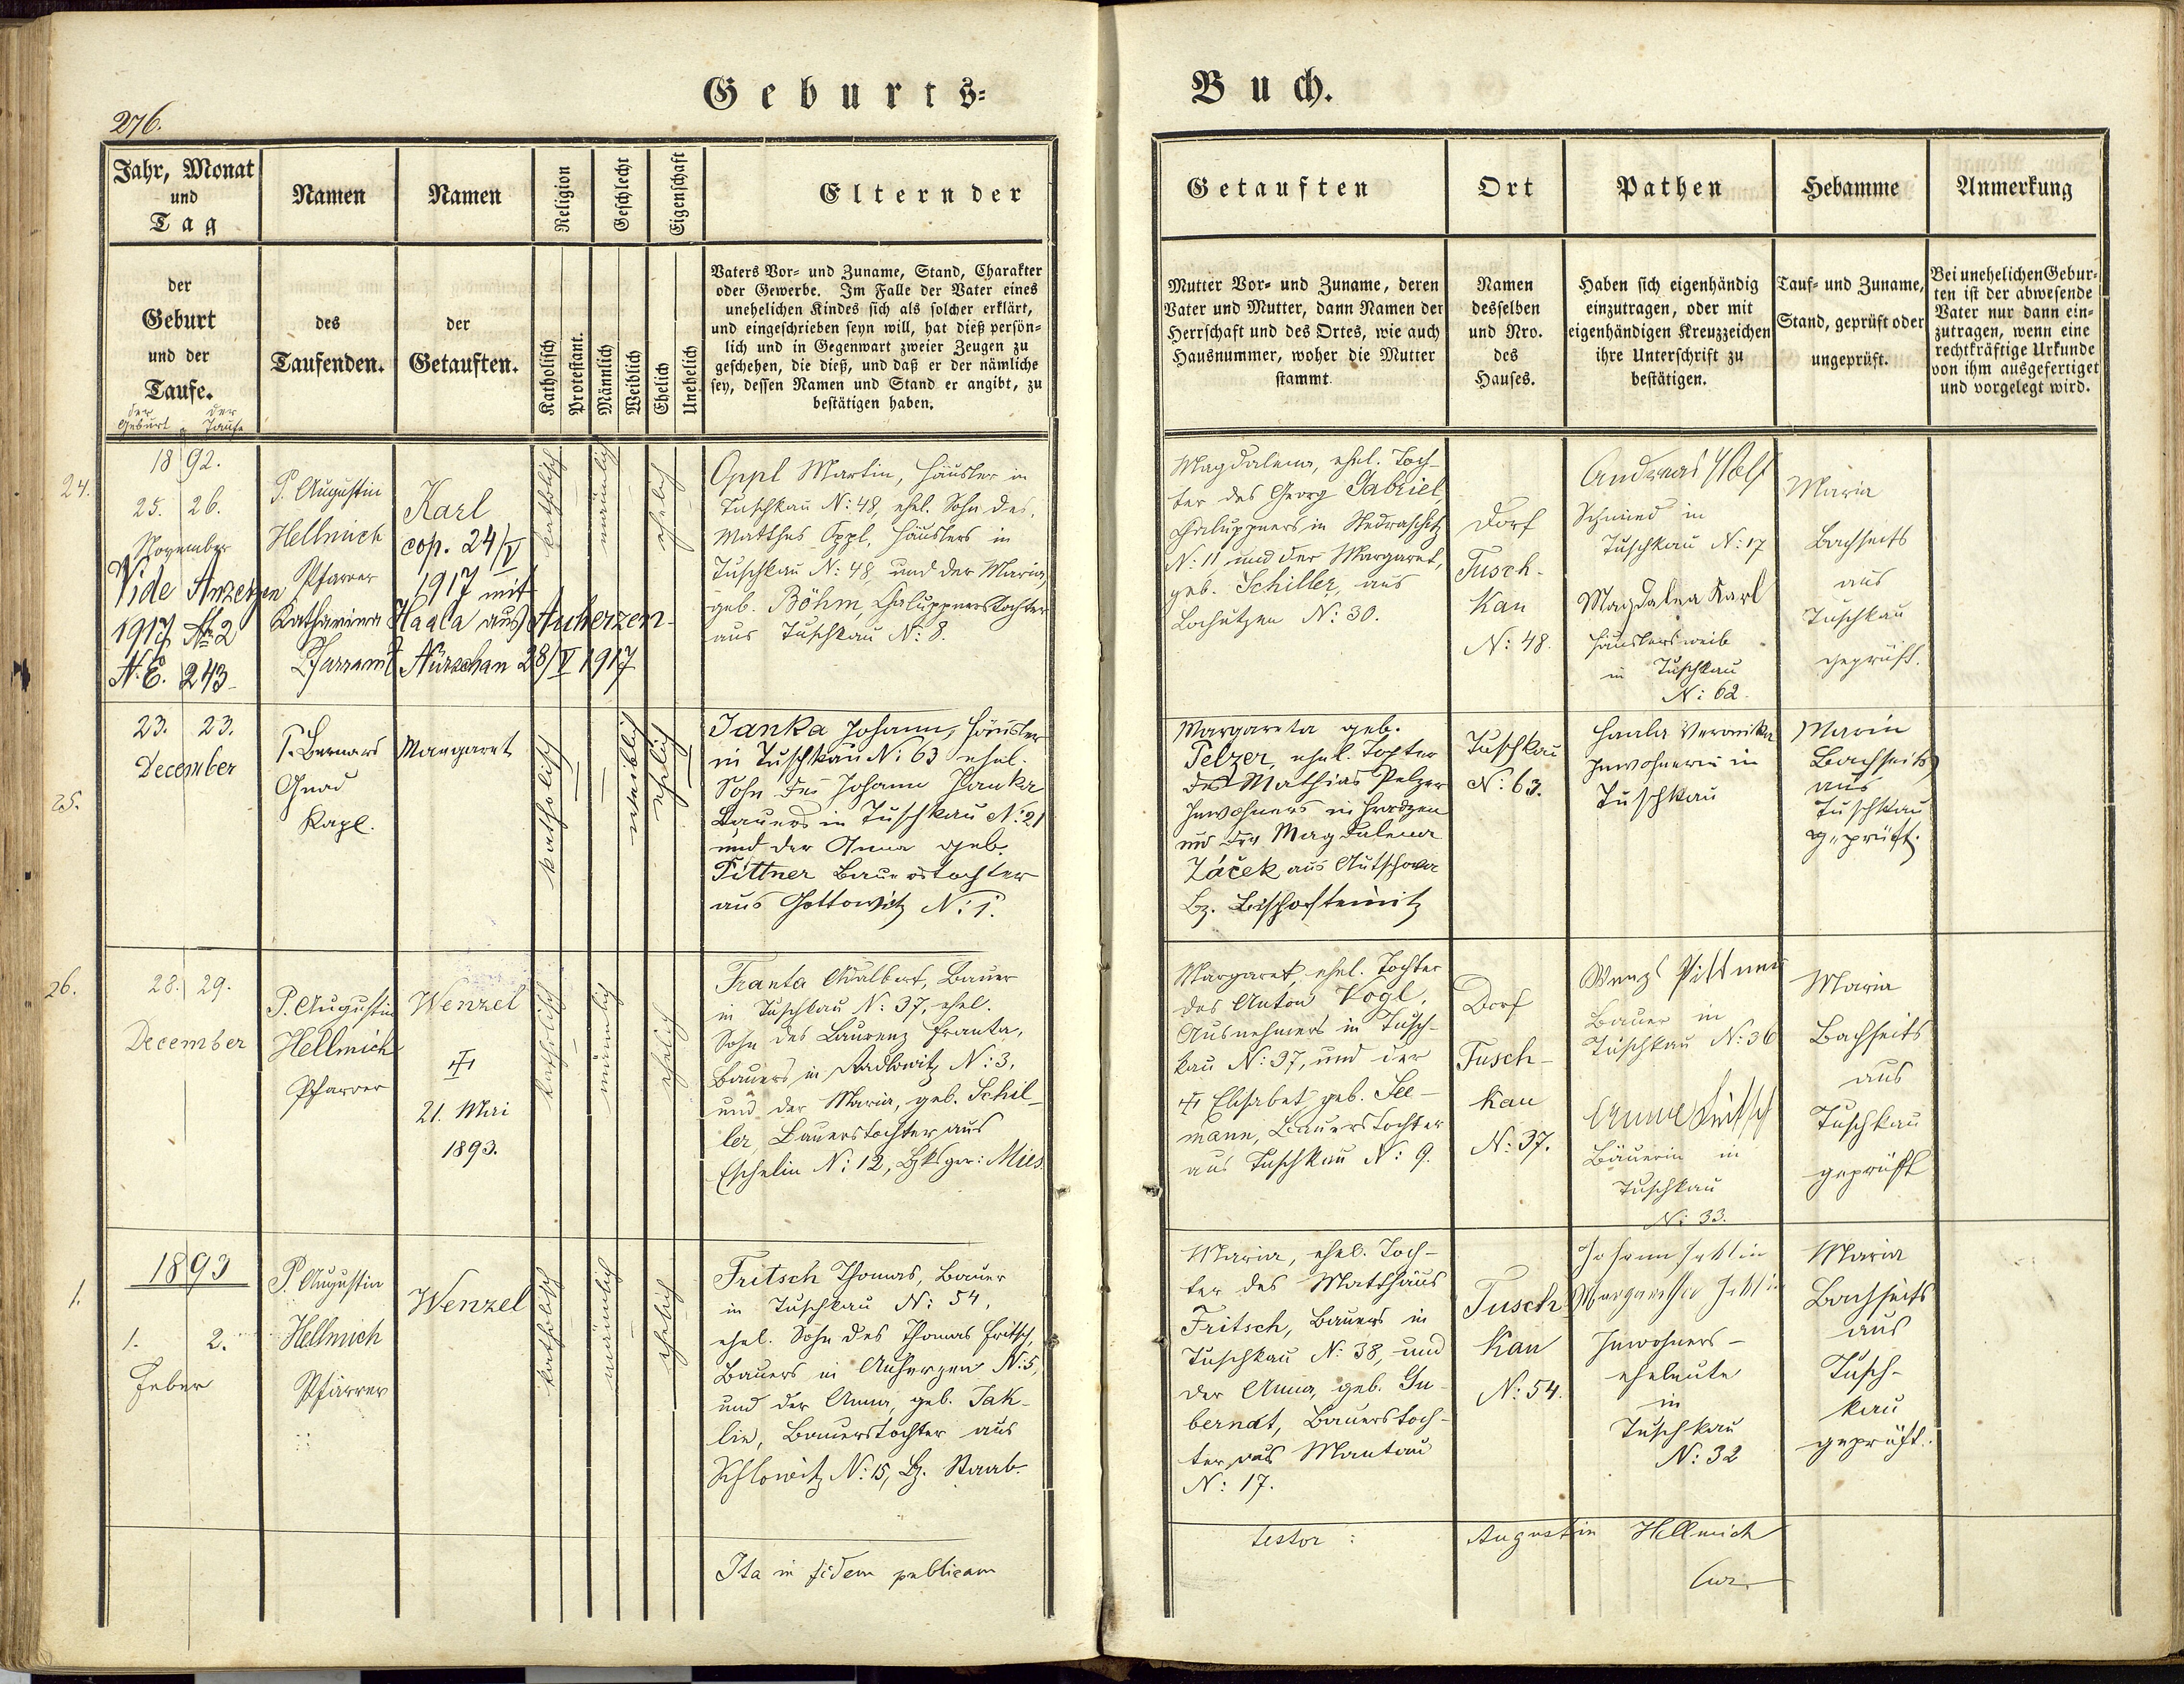 276.
Geburts=
Buch.
Jahr, Monat
und
Tag
Namen
Namen
Religion
Geschlecht
Eigenschaft
Eltern der
Getauften
Ort
Pathen
Hebamme
Anmerkung
der
Geburt
und der
Taufe.
der Geburt
der Taufe
des
Taufenden.
der
Getauften.
Katholisch
Protestant.
Männlich
Weiblich
Ehelich
Unehelich
Vaters Vor= und Zuname, Stand, Charakter
oder Gewerbe. Im Falle der Vater eines
unehelichen Kindes sich als solcher erklärt,
und eingeschrieben seyn will, hat dieß persön=
lich und in Gegenwart zweier Zeugen zu
geschehen, die dieß, und daß er der nämliche
sey, dessen Namen und Stand er angibt, zu
bestätigen haben.
Mutter Vor= und Zuname, deren
Vater und Mutter, dann Namen der
Herrschaft und des Ortes, wie auch
Hausnummer, woher die Mutter
stammt.
Namen
desselben
und Nro.
des
Hauses.
Haben sich eigenhändig
einzutragen, oder mit
eigenhändigen Kreuzzeichen
ihre Unterschrift zu
bestätigen.
Tauf= und Zuname,
Stand, geprüft oder
ungeprüft.
Bei unehelichen Gebur=
ten ist der abwesende
Vater nur dann ein=
zutragen, wenn eine
rechtkräftige Urkunde
von ihm ausgefertiget
und vorgelegt wird.
24.
1892.
25. 26.
November
Vide Anzeigen
1917 № 2
N.E. 243
P. Augustin
Hellmich
Pfarrer
Karl
cop. 24/V
1917 mit
Katharina Haala aus Auherzen
Pfarramt Nürschan 28/V 1917
katholisch
männlich
ehelich
Oppl Martin, Häusler in
Tuschkau N: 48, ehel. Sohn des
Matthes Oppl, Häuslers in
Tuschkau N: 48, und der Maria,
geb. Böhm, Chaluppnerstochter
aus Tuschkau N: 8.
Magdalena, ehel. Toch-
ter des Georg Gabriel,
Chaluppners in Nedraschitz
N: 11 und der Margaret,
geb. Schiller, aus
Lochutzen N: 30.
Dorf
Tusch-
kau
N: 48.
Andreas Wolf
Schmied in
Tuschkau N: 17
Magdalea Karl
Häuslersweib
in Tuschkau
N: 62.
Maria
Bachseits
aus
Tuschkau
geprüft.
25.
23. 23.
December
P. Bernard
Gnad
Kapl.
Margaret
katholisch
weiblich
ehelich
Janka Johann, Häusler
in Tuschkau N: 63 ehel.
Sohn des Johann Janka
Bauers in Tuschkau N: 21
und der Anna geb.
Pittner Bauerstochter
aus Gottowitz N: 1.
Margareta geb.
Pelzer, ehel. Tochter
des Mathias Pelzer
Inwohners in Hradzen
und der Magdalena
Žáček aus
Bz. Bischofteinitz
Tuschkau
N: 63.
Haala Veronika
Inwohnerin in
Tuschkau
Maria
Bachseits
aus
Tuschkau
geprüft.
26.
28. 29.
December
P. Augustin
Hellmich
Pfarrer
Wenzel
✝
21. Mai
1893.
katholisch
männlich
ehelich
Franta Adalbert, Bauer
in Tuschkau N: 37, ehel.
Sohn des Laurenz Franta,
Bauers in Radlowitz N: 3,
und der Maria, geb. Schil-
ler, Bauerstochter aus
Eschelin N: 12, Bzksger: Mies.
Margaret, ehel. Tochter
des Anton Vogl,
Ausnehmers in Tusch-
kau N: 37, und der
✝ Elisabet geb. See-
mann, Bauerstochter
aus Tuschkau N: 9.
Dorf
Tusch-
kau
N: 37.
Wenzl Pittner
Bauer in
Tuschkau N: 36
Anna Fritsch
Bäuerin in
Tuschkau
N: 33.
Maria
Bachseits
aus
Tuschkau
geprüft
1.
1893
1. 2.
Feber
P. Augustin
Hellmich
Pfarrer
Wenzel
katholisch
männlich
ehelich
Fritsch Thomas, Bauer
in Tuschkau N: 54,
ehel. Sohn des Thomas Fritsch,
Bauers in Auherzen N: 5,
und der Anna, geb. Jak-
lin, Bauerstochter aus
Schlowitz N: 15, Bz. Staab.
Maria, ehel. Toch-
ter des Matthäus
Fritsch, Bauers in
Tuschkau N: 38, und
der Anna, geb. Gu-
berndt, Bauerstoch-
ter aus Mantau
N: 17.
Tusch-
kau
N: 54.
Johann Jaklin
Margaretha Jaklin
Inwohners-
eheleute
in
Tuschkau
N: 32
Maria
Bachseits
aus
Tusch-
kau
geprüft.
Ita in fidem publicam
testor :
Augustin Hellmich
Cur.